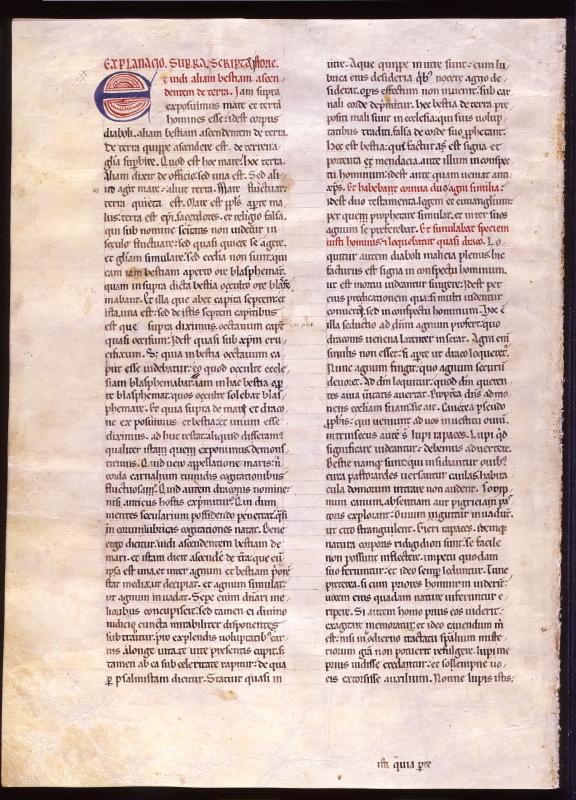 EXPLANATIO. SUPRA SCRIPTE storie.
Et uidi aliam bestiam ascen
dentem de terra. Iam supra
exposuimus mare et terrã
homines esse: idest corpus
diaboli. aliam bestiam ascendentem de terra.
de terra quippe ascendere est. de terrena
gl̃ia supbire. Quod est hoc mare: hoc terra.
Aliam dixit de officio: sed una est. Sed ali
ud agit mare: aliut terra. Mare fluctuat:
terra quieta est. Mare est
malus: terra est ep̃i. sacerdotes. et religio falsa.
qui sub nomine sc̃itatis non uidetur in
seculo fluctuare: sed quasi quiete se agere.
et gl̃iam simulare: sed eccl̃ia non sunt: qui
eam iam bestiam aperto ore blasphemat.
quam in supra dicta bestia occulto ore blasfe
mabant. Et illa que abet capita septem: et
ista. una est: sed de istis septem capitibus
est que supra diximus. octauum caput
quasi occisum: idest quasi sub xp̃m cru
cifixum. Si quia in bestia octauum ca
put esse uidebatur: eo quod occulte eccle
siam blasphemabat: iam in hac bestia
te blasphemat. quos occulte solebat blas
phemare. Et quia supra de mari et draco
ne exposuimus et bestia: et unum esse
diximus. ad huc restat aliquid disseram:
qualiter istam quem exposuimus demons
tremus. Quid uero appellatione maris: ñ
corda carnalium tumidis cogitationibus
fluctuosa Quid autem draconis nomine:
nisi anticus hostis exp̃mitur? Qui dum
mentes secularium possidendo penetrat. q̃si
in eorum lubricas cogitationes natat. Bene
ergo dicitur. uidi ascendentem bestiam de
mari. et istam dicit ascendẽ de t̃ra: que cũ
ipsa est una. et inter agnum et bestiam p̃ore
stat media. ut decipiat. et agnum simulat:
ut agnum inuadat. Sepe enim diuari me
lioribus concupiscit. sed tamen ei diuino
iudicio cuncta mirabiliter disponentes
subtraitur. pro explendis uoluptatib; car
nis. Alonge uita. te uite presentis capit. s;
tamen ab ea sub celeritate rapitur: de qua
p psalmistam dicitur. Statuit quasi in
uite. Aque quippe in uite sunt: cum lu
brica eius desideria nocere agno de
siderat. opis effectum non inuenit. sub car
nali corde dep̃mitur. Hec bestia de terra pre
positi mali sunt in ecclesia: qui suis uolup
tatibus traditi. falsa de corde suo pphetant.
Hec est bestia: qui factur̃as est signa et
portenta et mendacia. ante illum in conspe
tu hominum: idest ante quam ueniat anti
xp̃s. Et habebant cornua duo agni similia:
idest duo testamenta. legem et euangelium:
per quem prophetare simulat. et inter suos
agnum se preferebat. Et simulabat speciem
iusti hominis: et loquebatur quasi draco. Lo
quitur autem diaboli malicia plenus: hic
facturus est signa in conspectu hominum.
ut est mortui uideantur surgere: Idest per
eius predicationem quasi multi uidentur
conuerti. sed in conspectu hominum. Hoc ẽ
illa seductio ad diñi agnum profert. quo
draconis uenena latenter inserat. Agni eni
similis non esset: si apte ut draco loqueret̃.
Nunc agnum fingit: quo agnum securũ
deuoret. Ad diñ loquitur. quod diñ queren
tes a uia ũitatis auertat. Propterea dñs admo
nens ecclesiam suam. sic ait. Cauete a pseudo
pphis: qui ueniunt ad uos in uestitu ouiũ.
intrinsecus autẽ s̃ lupi rapaces. Lupi q̃d
significare uideantur: debemus aduertere.
Bestie namq; sunt: qui insidiantur ouib;
circa pastorales uersantur caulas. habita
cula domorum intrare non audent. Somp
num canum. absentiam aut pigritiam pas
toris explorant. Ouium in guttur inuadũt
ut cito strangulent. Fieri rapaces. idemq;
natura corporis rigidi: dum se facile
non possunt inflectere. impetu quodam
suo feruntur: et ideo semp leduntur. Tunc
preterea. si cum priores hominem uiderit:
uocem eius quadam nature inferuntur e
ripere. Si autem homo prius eos uiderit:
exagitare memorant̃: et ideo cauendum m̃
est: nisi in odierno tractatu sp̃alium miste
riorum gr̃a non poterit refulgere. lupi me
prius uidisse credantur: et sollempne uo
cis extorsisse auxilium. Nonne lupis istis:
isti quia p̃re